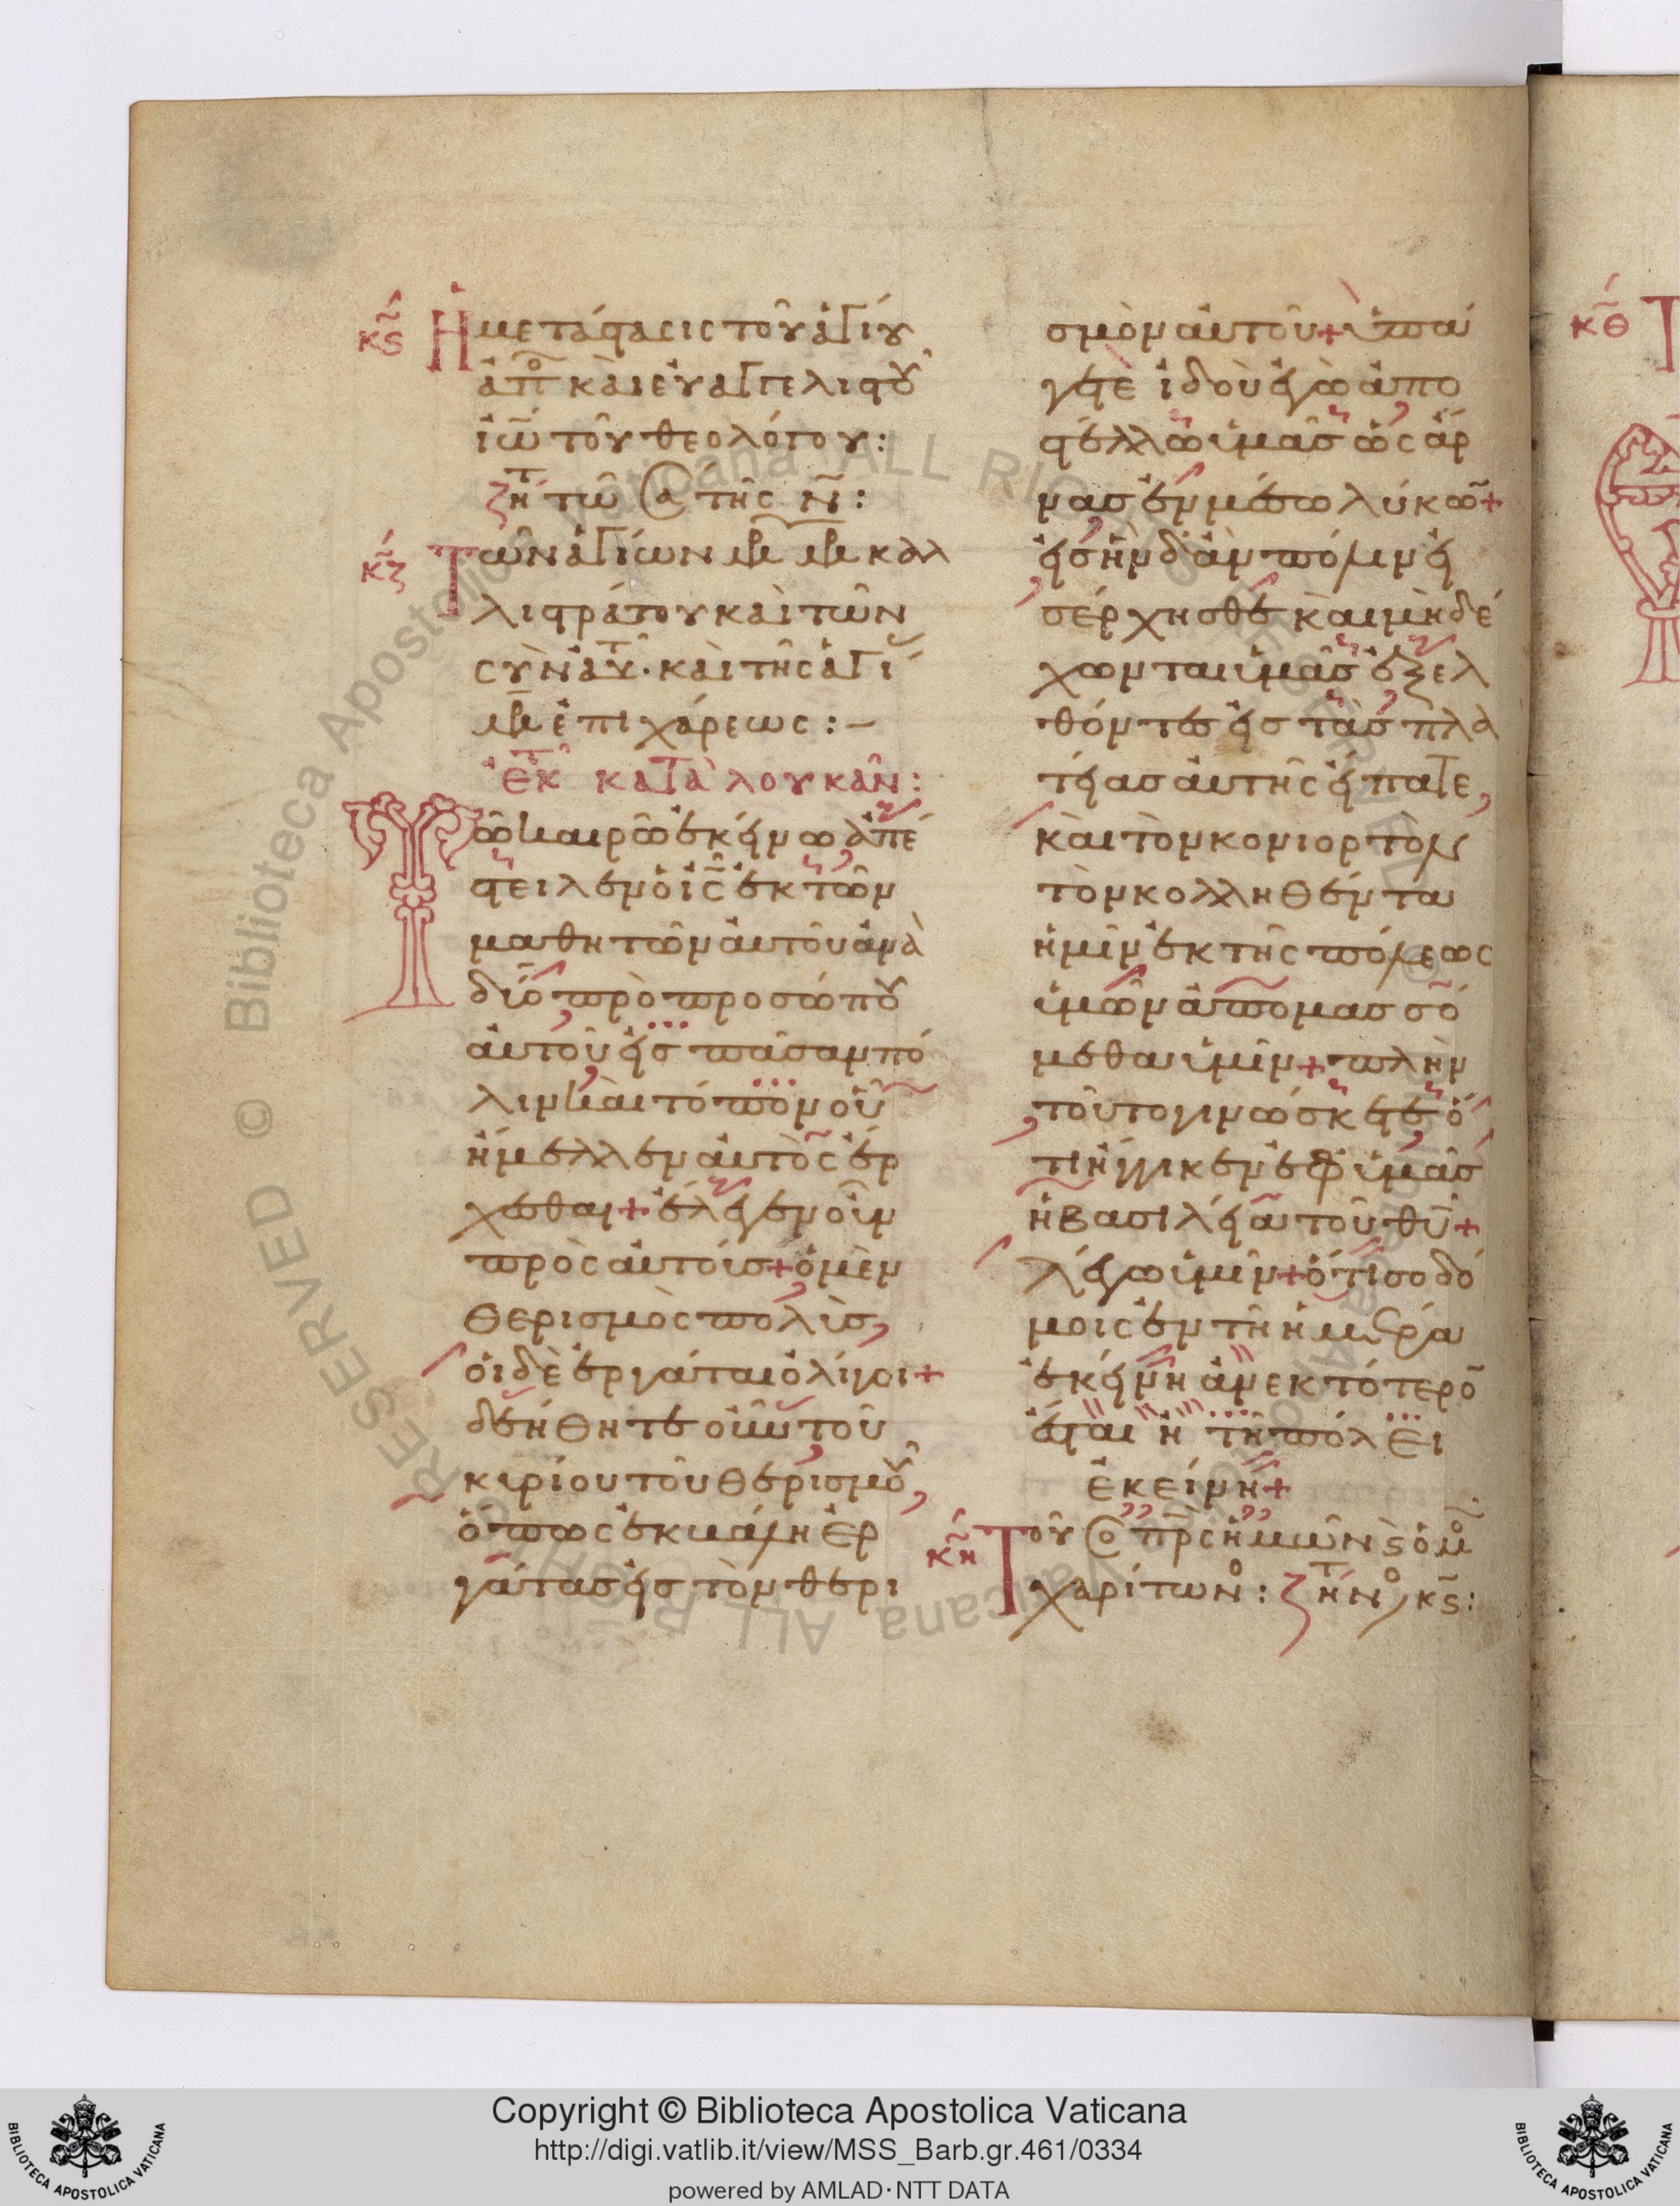 κϛ Ἡ μετάστασις τοῦ ἁγίου
ἀπο καὶ εὐαγγελιστοῦ
ἰω τοῦ θεολόγου:
ζητ τῶ Σα τῆς ν:
κζ Τῶν ἁγίων μρ μρ καλ
λιστράτου καὶ τῶν
σὺν αὐτ· καὶ τῆς ἁγί
μρ ἐπιχάρεως:–
ἐκ κατὰ λουκᾶν:
Τῶ καιρῶ ἐκείνω ἀπέ
στειλεν ὁ ις ἐκ τῶν
μαθητῶν αὐτοῦ ἀνὰ
δύο πρὸ προσώπου
αὐτοῦ εἰς πᾶσαν πό
λιν καὶ τόπον οὗ
ἤμελλεν αὐτὸς ἔρ
χεσθαι+ ἔλεγεν οὖν
πρὸς αὐτούς+ ὁ μὲν
θερισμὸς πολὺς,
οἱ δὲ ἐργάται ὀλίγοι+
δεήθητε οὖν τοῦ
κυρίου τοῦ θερισμοῦ,
ὅπως ἐκβάλη ἐρ
γάτας εἰς τὸν θερι
σμὸν αὐτοῦ+ ὑπά
γετε ἰδοὺ ἐγὼ ἀπο
στέλλω ὑμᾶς ὡς ἄρ
νας ἐν μέσω λύκων+
εἰς ἣν δ' ἂν πόλιν εἰ
σέρχησθε καὶ μὴ δέ
χωνται ὑμᾶς ἐξελ
θόντες εἰς τὰς πλα
τείας αὐτῆς εἴπατε,
καὶ τὸν κονιορτὸν
τὸν κολληθέντα
ἡμῖν ἐκ τῆς πόλεως
ὑμῶν ἀπομασσό
μεθα ὑμῖν+ πλὴν
τοῦτο γινώσκετε ὅ
τι ἤγγικεν ἐφ' ὑμᾶς
ἡ βασιλεία τοῦ θυ+
λέγω ὑμῖν+ ὅτι σοδό
μοις ἐν τῆ ἡμέρα
ἐκείνη ἀνεκτότερον
ἔσται ἢ τῆ πόλει
ἐκείνη+
κη Τοῦ ὁ πρς ἡμῶν ϛ ὁμο
χαρίτων: ζητ νο κϛ:
κθ Τ
Copyright © Biblioteca Apostolica Vaticana
http://digi.vatlib.it/view/MSS_Barb.gr.461/0334
powered by AMLAD·NTT DATA